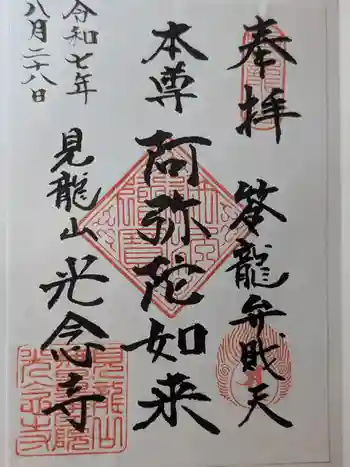 奉拝
笒龍弁財天
本尊
阿弥陀如来
令和七年
八月二十八日
見龍山
光念寺
見龍山
光念寺